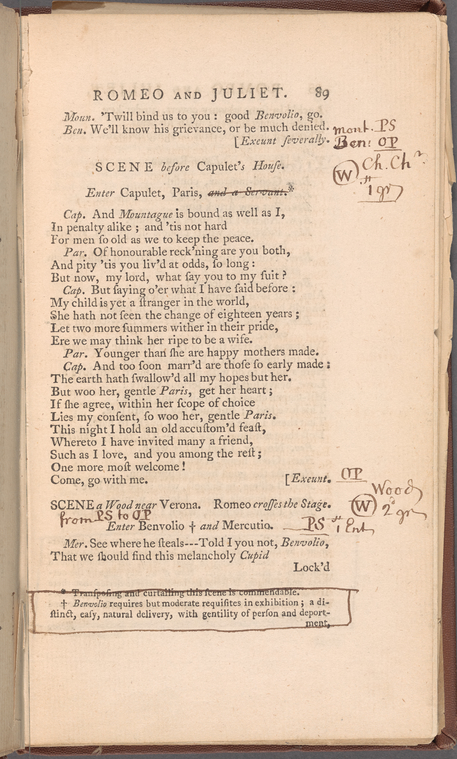 ROMEO AND JULIET. 89
Moun. 'Twill bind us to you : good Benvolio, go.
Ben. We'll know his grievance, or be much denied.
[Exeunt ſeverally.
mont. PS
Ben: OP
SCENE before Capulet's Houſe.
W Ch. Chr
1 gr
Enter Capulet, Paris, and a Servant.*
Cap. And Mountague is bound as well as I,
In penalty alike ; and 'tis not hard
For men ſo old as we to keep the peace.
Par. Of honourable reck'ning are you both,
And pity 'tis you liv'd at odds, ſo long :
But now, my lord, what ſay you to my ſuit ?
Cap. But ſaying o'er what I have ſaid before :
My child is yet a ſtranger in the world,
She hath not ſeen the change of eighteen years ;
Let two more ſummers wither in their pride,
Ere we may think her ripe to be a wife.
Par. Younger than ſhe are happy mothers made.
Cap. And too ſoon marr'd are thoſe ſo early made :
The earth hath ſwallow'd all my hopes but her.
But woo her, gentle Paris, get her heart ;
If ſhe agree, within her ſcope of choice
Lies my conſent, ſo woo her, gentle Paris.
This night I hold an old accuſtom'd feaſt,
Whereto I have invited many a friend,
Such as I love, and you among the reſt ;
One more moſt welcome !
Come, go with me. [Exeunt. OP
SCENE a Wood near Verona. Romeo croſſes the Stage.
Wood
W 2d gr
from PS to OP
Enter Benvolio † and Mercutio. PS 1 Ent
Mer. See where he ſteals---Told I you not, Benvolio,
That we ſhould find this melancholy Cupid
Lock'd
* Tranſpoſing and curtailing this ſcene is commendable.
† Benvolio requires but moderate requiſites in exhibition ; a di-
ſtinct, eaſy, natural delivery, with gentility of perſon and deport-
ment,